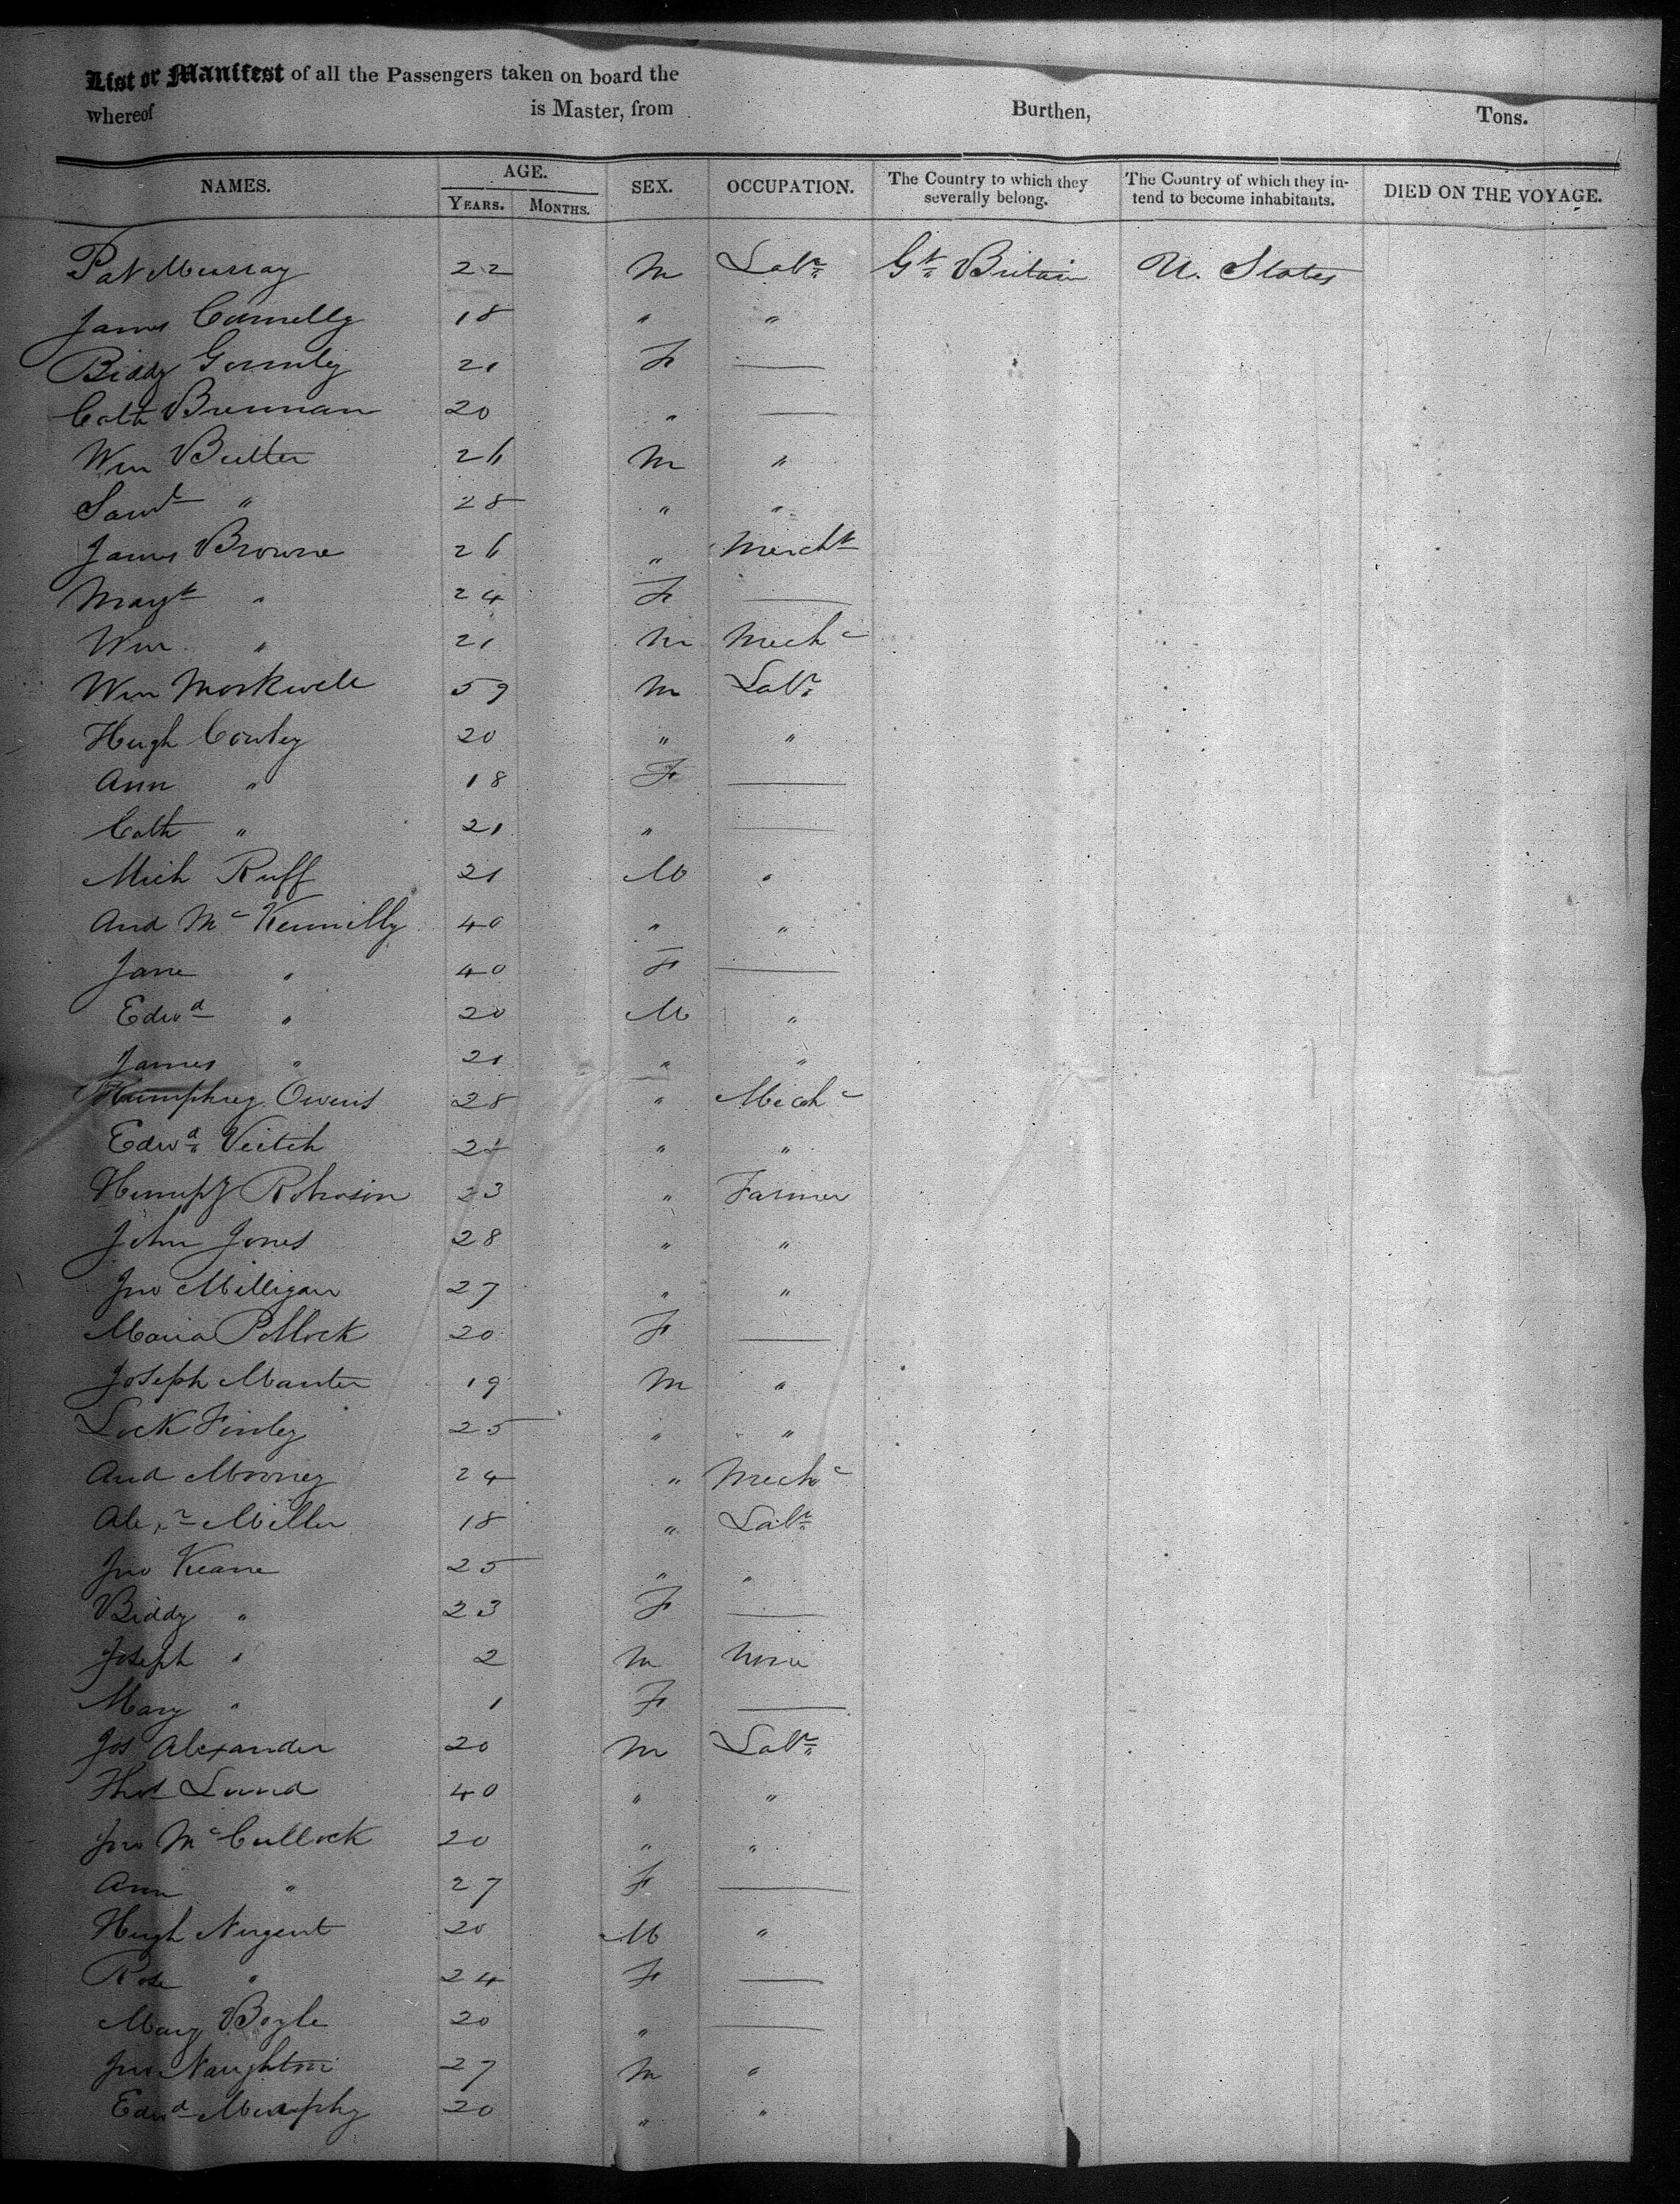 List or Manifest of all the Passengers taken on board the
whereof is Master, from Burthen, Tons.
NAMES. AGE. YEARS. MONTHS. SEX. OCCUPATION. The Country to which they severally belong. The Country of which they intend to become inhabitants. DIED ON THE VOYAGE.
Pat Murray 22 M Labr Gt Britain U. States
James Connelly 18 " "
Biddy Gormly 21 F —
Cath Brennan 20 " —
Wm Butler 26 M "
Saml " 28 " "
James Browne 26 " Mercht
Margt " 24 F —
Wm " 21 M Mechc
Wm Morkwell 59 M Labr
Hugh Conley 20 " "
Ann " 18 F —
Cath " 21 " —
Mich Ruff 21 M "
And Mc Kennilly 40 " "
Jane " 40 F —
Edwd " 20 M "
James " 21 " "
Humphrey Owens 28 " Mechc
Edwd Veitch 24 " "
Humpy Robinson 23 " Farmer
John Jones 28 " "
Jno Milligan 27 " "
Maria Pollock 20 F —
Joseph Manter 19 M "
Lock Finley 25 " "
And Mooney 24 " Mechc
Alexr Miller 18 " Labr
Jno Keane 25 " "
Biddy " 23 F —
Joseph " 2 M None
Mary " 1 F —
Jos Alexander 20 M Labr
Thos Lund 40 " "
Jno Mc Cullock 20 " "
Ann " 27 F —
Hugh Nugent 20 M "
Rose " 24 F —
Mary Boyle 20 " —
Jno Naughton 27 M "
Edwd Murphy 20 " "